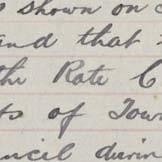 s shown on
and that
the Rate
ts of Tow
ncil durin